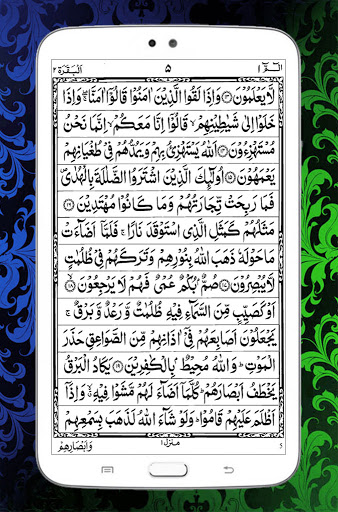 الٓمّٓ ١ ٥ اَلْبَقَرَة ٢
لَّا یَعْلَمُوْنَ ﴿۱۳﴾ وَاِذَا لَقُوا الَّذِیْنَ اٰمَنُوْا قَالُوْۤا اٰمَنَّا ۖۚ وَاِذَا
خَلَوْا اِلٰی شَیٰطِیْنِهِمْ ۙ قَالُوْۤا اِنَّا مَعَكُمْ ۙ اِنَّمَا نَحْنُ
مُسْتَهْزِءُوْنَ ﴿۱۴﴾ اَللّٰهُ یَسْتَهْزِئُ بِهِمْ وَیَمُدُّهُمْ فِیْ طُغْیَانِهِمْ
یَعْمَهُوْنَ ﴿۱۵﴾ اُولٰٓئِكَ الَّذِیْنَ اشْتَرَوُا الضَّلٰلَةَ بِالْهُدٰی ۪
فَمَا رَبِحَتْ تِّجَارَتُهُمْ وَمَا كَانُوْا مُهْتَدِیْنَ ﴿۱۶﴾
مَثَلُهُمْ كَمَثَلِ الَّذِی اسْتَوْقَدَ نَارًا ۚ فَلَمَّاۤ اَضَآءَتْ
مَاحَوْلَهٗ ذَهَبَ اللّٰهُ بِنُوْرِهِمْ وَتَرَكَهُمْ فِیْ ظُلُمٰتٍ
لَّا یُبْصِرُوْنَ ﴿۱۷﴾ صُمٌّۢ بُكْمٌ عُمْیٌ فَهُمْ لَا یَرْجِعُوْنَ ﴿۱۸﴾
اَوْ كَصَیِّبٍ مِّنَ السَّمَآءِ فِیْهِ ظُلُمٰتٌ وَّرَعْدٌ وَّبَرْقٌ ۚ
یَجْعَلُوْنَ اَصَابِعَهُمْ فِیْۤ اٰذَانِهِمْ مِّنَ الصَّوَاعِقِ حَذَرَ
الْمَوْتِ ؕ وَاللّٰهُ مُحِیْطٌۢ بِالْكٰفِرِیْنَ ﴿۱۹﴾ یَكَادُ الْبَرْقُ
یَخْطَفُ اَبْصَارَهُمْ ؕ كُلَّمَاۤ اَضَآءَ لَهُمْ مَّشَوْا فِیْهِ ۙۗ وَاِذَاۤ
اَظْلَمَ عَلَیْهِمْ قَامُوْا ؕ وَلَوْ شَآءَ اللّٰهُ لَذَهَبَ بِسَمْعِهِمْ
منزل ١
وَاَبْصَارِهِمْ
5